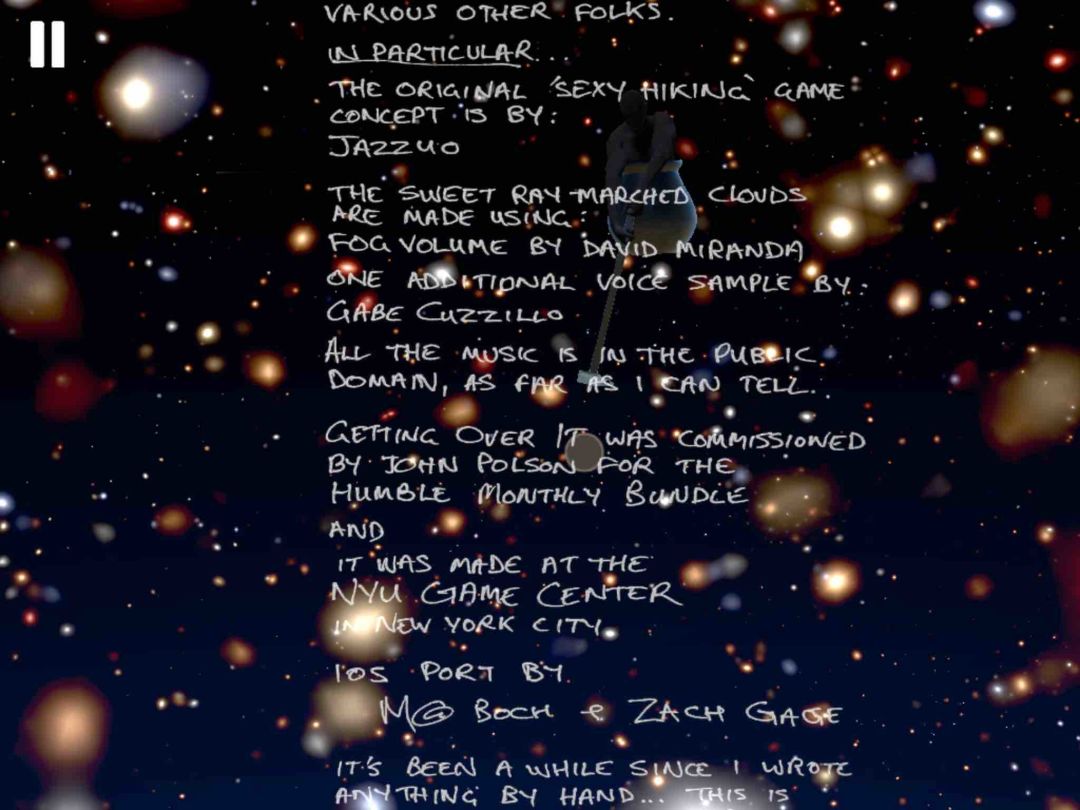 VARIOUS OTHER FOLKS.
IN PARTICULAR...
THE ORIGINAL 'SEXY HIKING' GAME
CONCEPT IS BY:
JAZZUO
THE SWEET RAY-MARCHED CLOUDS
ARE MADE USING:
FOG VOLUME BY DAVID MIRANDA
ONE ADDITIONAL VOICE SAMPLE BY:
GABE CUZZILLO
ALL THE MUSIC IS IN THE PUBLIC
DOMAIN, AS FAR AS I CAN TELL.
GETTING OVER IT WAS COMMISSIONED
BY JOHN POLSON FOR THE
HUMBLE MONTHLY BUNDLE
AND
IT WAS MADE AT THE
NYU GAME CENTER
IN NEW YORK CITY
IOS PORT BY
M@ BOCH & ZACH GAGE
IT'S BEEN A WHILE SINCE I WROTE
ANYTHING BY HAND... THIS IS